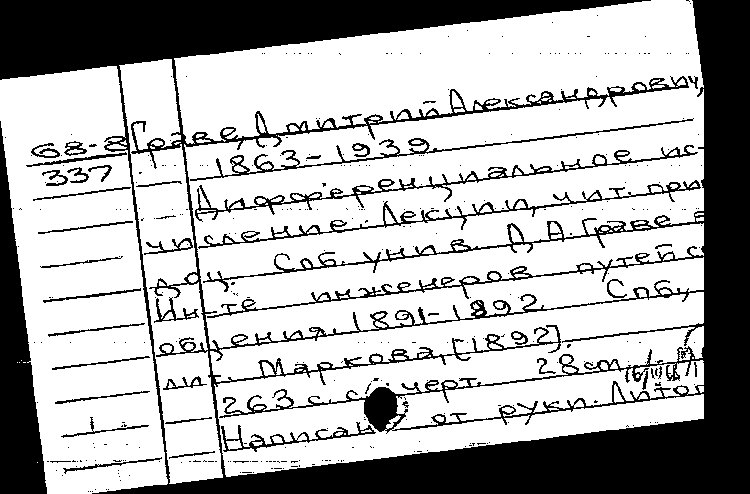 68-8 Граве, Дмитрий Александрович,
337 1863-1939.
Дифференциальное ис-
числение. Лекции, чит. при
Спб. унив. Д.А. Граве в
Ин-те инженеров путей с
общения. 1891-1892. Спб.,
лит. Маркова, [1892].
263 с. с черт. 28 cm.
Написан от рукп. Литог